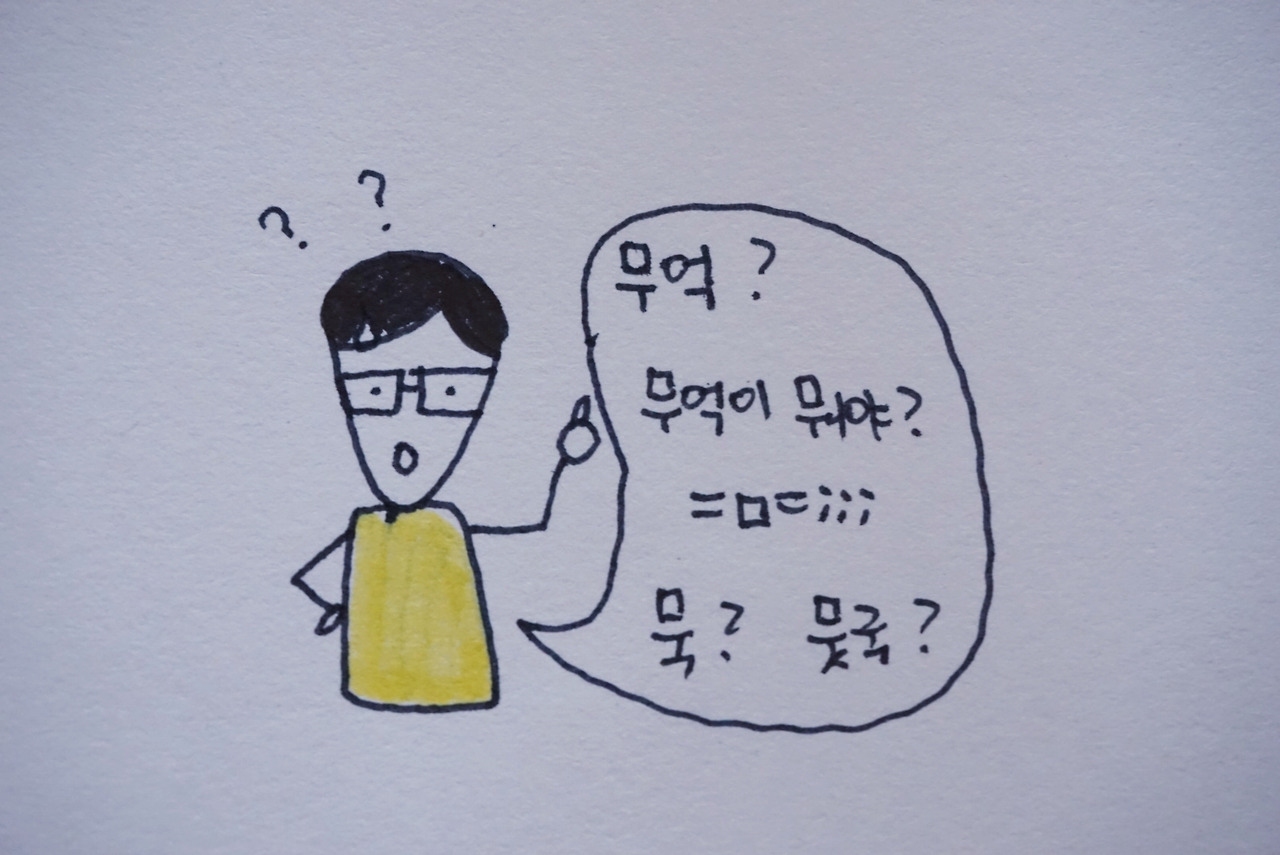 ? ?
무역 ?
무역이 뭐야?
=ㅁ=;;;
묵? 뭇국?